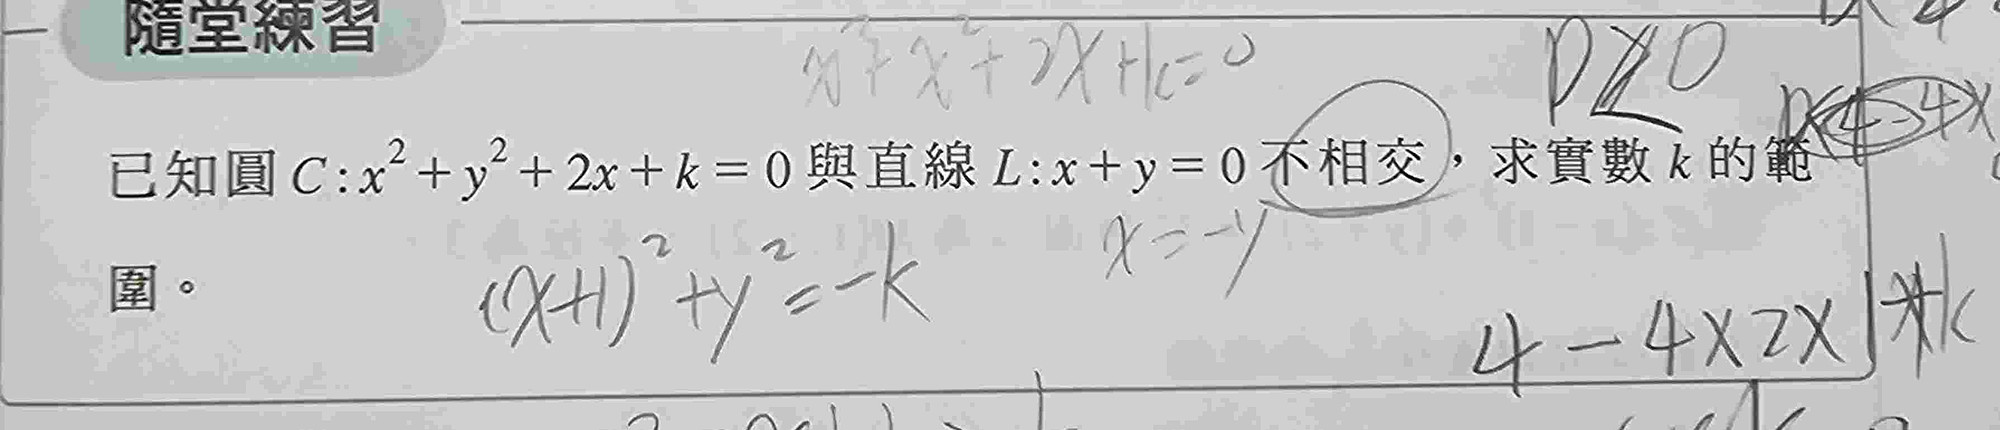 隨堂練習
x²+x²+2x+k=0
D<0
已知圓 C:x²+y²+2x+k=0 與直線 L:x+y=0 不相交,求實數 k 的範
圍。
x=-y
(x+1)²+y²=-k
4-4×2×